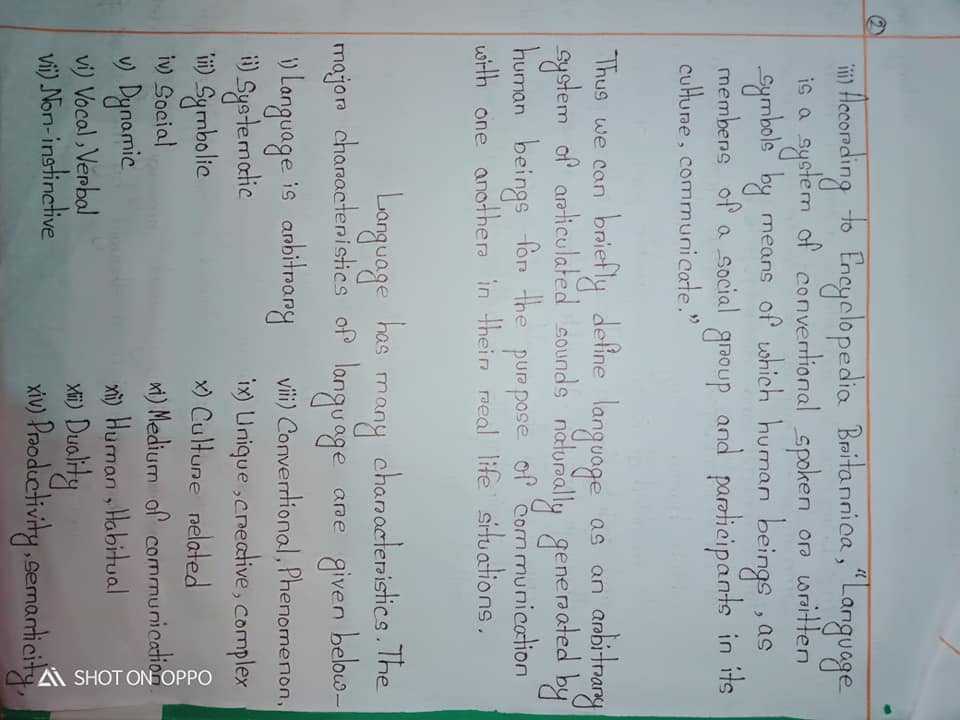 ②
iii) According to Encyclopedia Britannica, "Language
is a system of conventional spoken or written
symbols by means of which human beings, as
members of a social group and participants in its
culture, communicate."
Thus we can briefly define language as an arbitrary
system of articulated sounds naturally generated by
human beings for the purpose of communication
with one another in their real life situations.
Language has many characteristics. The
major characteristics of language are given below-
i) Language is arbitrary
ii) Systematic
iii) Symbolic
iv) Social
v) Dynamic
vi) Vocal, Verbal
vii) Non-instinctive
viii) Conventional, Phenomenon,
ix) Unique, creative, complex
x) Culture related
xi) Medium of communication.
xii) Human, Habitual
xiii) Duality
xiv) Productivity, semanticity,
SHOT ON OPPO